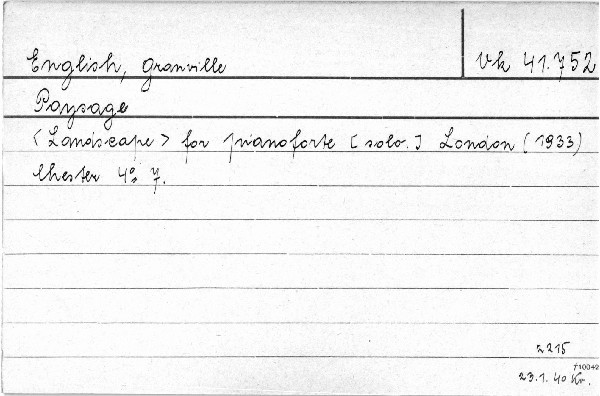 English, Granville
Vk 41.752
Paysage
<Landscape> for pianoforte [solo.] London (1933)
Chester 4° 7.
2215
f10042
23.1.40 Kr.